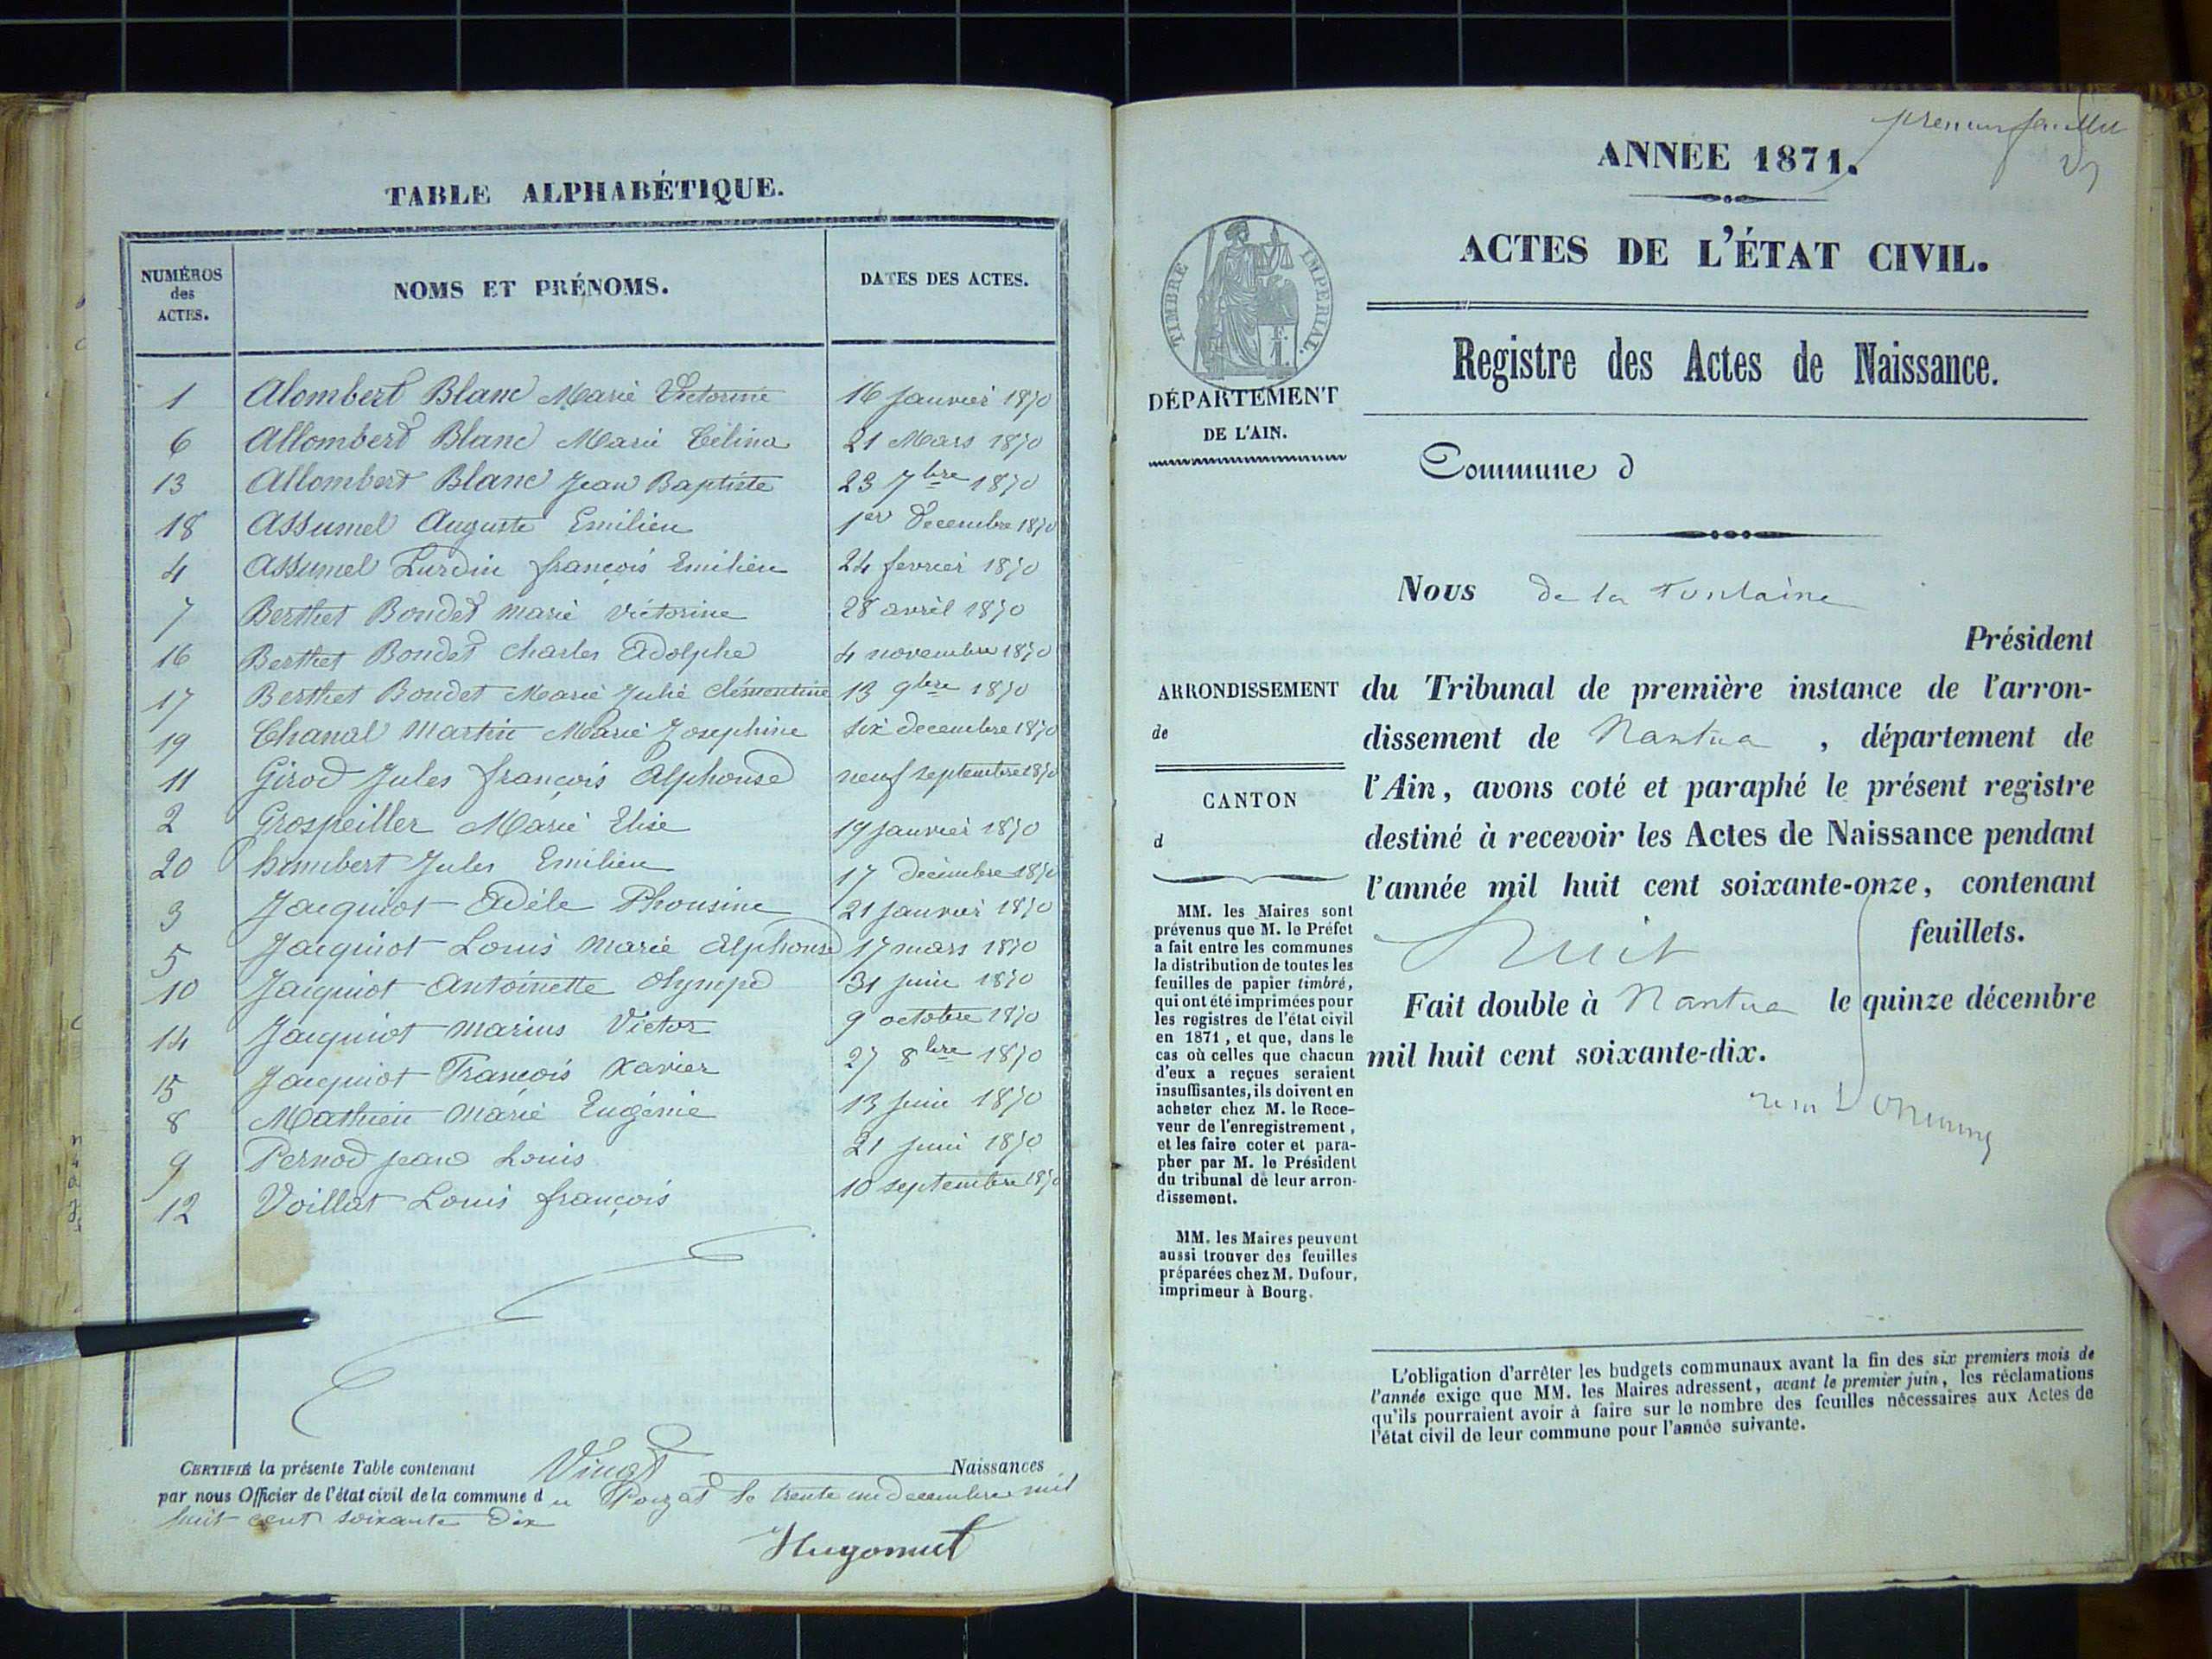 TABLE ALPHABÉTIQUE.
NUMÉROS des ACTES.
NOMS ET PRÉNOMS.
DATES DES ACTES.
1 Alombert Blanc Marie Victorine 16 Janvier 1870
6 Allombert Blanc Marie Célina 21 Mars 1870
13 Allombert Blanc Jean Baptiste 23 7bre 1870
18 Assumel Auguste Emilien 1er Decembre 1870
4 Assumel Lurdin françois Emilien 24 fevrier 1870
7 Berthet Bondet marie victorine 28 avril 1870
16 Berthet Bondet Charles Adolphe 4 novembre 1870
17 Berthet Bondet Marie Julie Clémentine 13 9bre 1870
19 Chanal Martin Marie Josephine six decembre 1870
11 Girod Jules françois Alphonse neuf septembre 1870
2 Grospeiller Marie Elise 19 Janvier 1870
20 humbert Jules Emilien 17 Decembre 1870
3 Jacquiot Adèle Phonsine 21 Janvier 1870
5 Jacquiot Louis Marie Alphonse 17 mars 1870
10 Jacquiot Antoinette Olympe 31 juin 1870
14 Jacquiot Marius Victor 9 octobre 1870
15 Jacquiot François Xavier 27 8bre 1870
8 Mathieu Marie Eugénie 13 Juin 1870
9 Pernod Jean Louis 21 juin 1870
12 Voillat Louis françois 10 septembre 1870
CERTIFIÉ la présente Table contenant Vingt Naissances
par nous Officier de l'état civil de la commune du Poizat le trente un decembre mil
huit cent soixante Dix
Hugonnet
premier feuillet
ANNÉE 1871.
ACTES DE L'ÉTAT CIVIL.
Registre des Actes de Naissance.
TIMBRE IMPÉRIAL.
DÉPARTEMENT
DE L'AIN.
Commune d
Nous de la Fontaine
Président
du Tribunal de première instance de l'arron-
dissement de Nantua, département de
l'Ain, avons coté et paraphé le présent registre
destiné à recevoir les Actes de Naissance pendant
l'année mil huit cent soixante-onze, contenant
huit feuillets.
Fait double à Nantua le quinze décembre
mil huit cent soixante-dix.
ARRONDISSEMENT
de
CANTON
d
MM. les Maires sont
prévenus que M. le Préfet
a fait entre les communes
la distribution de toutes les
feuilles de papier timbré,
qui ont été imprimées pour
les registres de l'état civil
en 1871, et que, dans le
cas où celles que chacun
d'eux a reçues seraient
insuffisantes, ils doivent en
acheter chez M. le Rece-
veur de l'enregistrement,
et les faire coter et para-
pher par M. le Président
du tribunal de leur arron-
dissement.
MM. les Maires peuvent
aussi trouver des feuilles
préparées chez M. Dufour,
imprimeur à Bourg.
L'obligation d'arrêter les budgets communaux avant la fin des six premiers mois de
l'année exige que MM. les Maires adressent, avant le premier juin, les réclamations
qu'ils pourraient avoir à faire sur le nombre des feuilles nécessaires aux Actes de
l'état civil de leur commune pour l'année suivante.